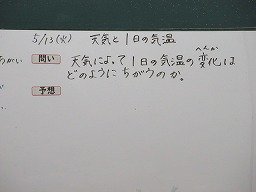 5/13(火) 天気と1日の気温
問い 天気によって1日の気温の変化は
へんか
どのようにちがうのか。
予想